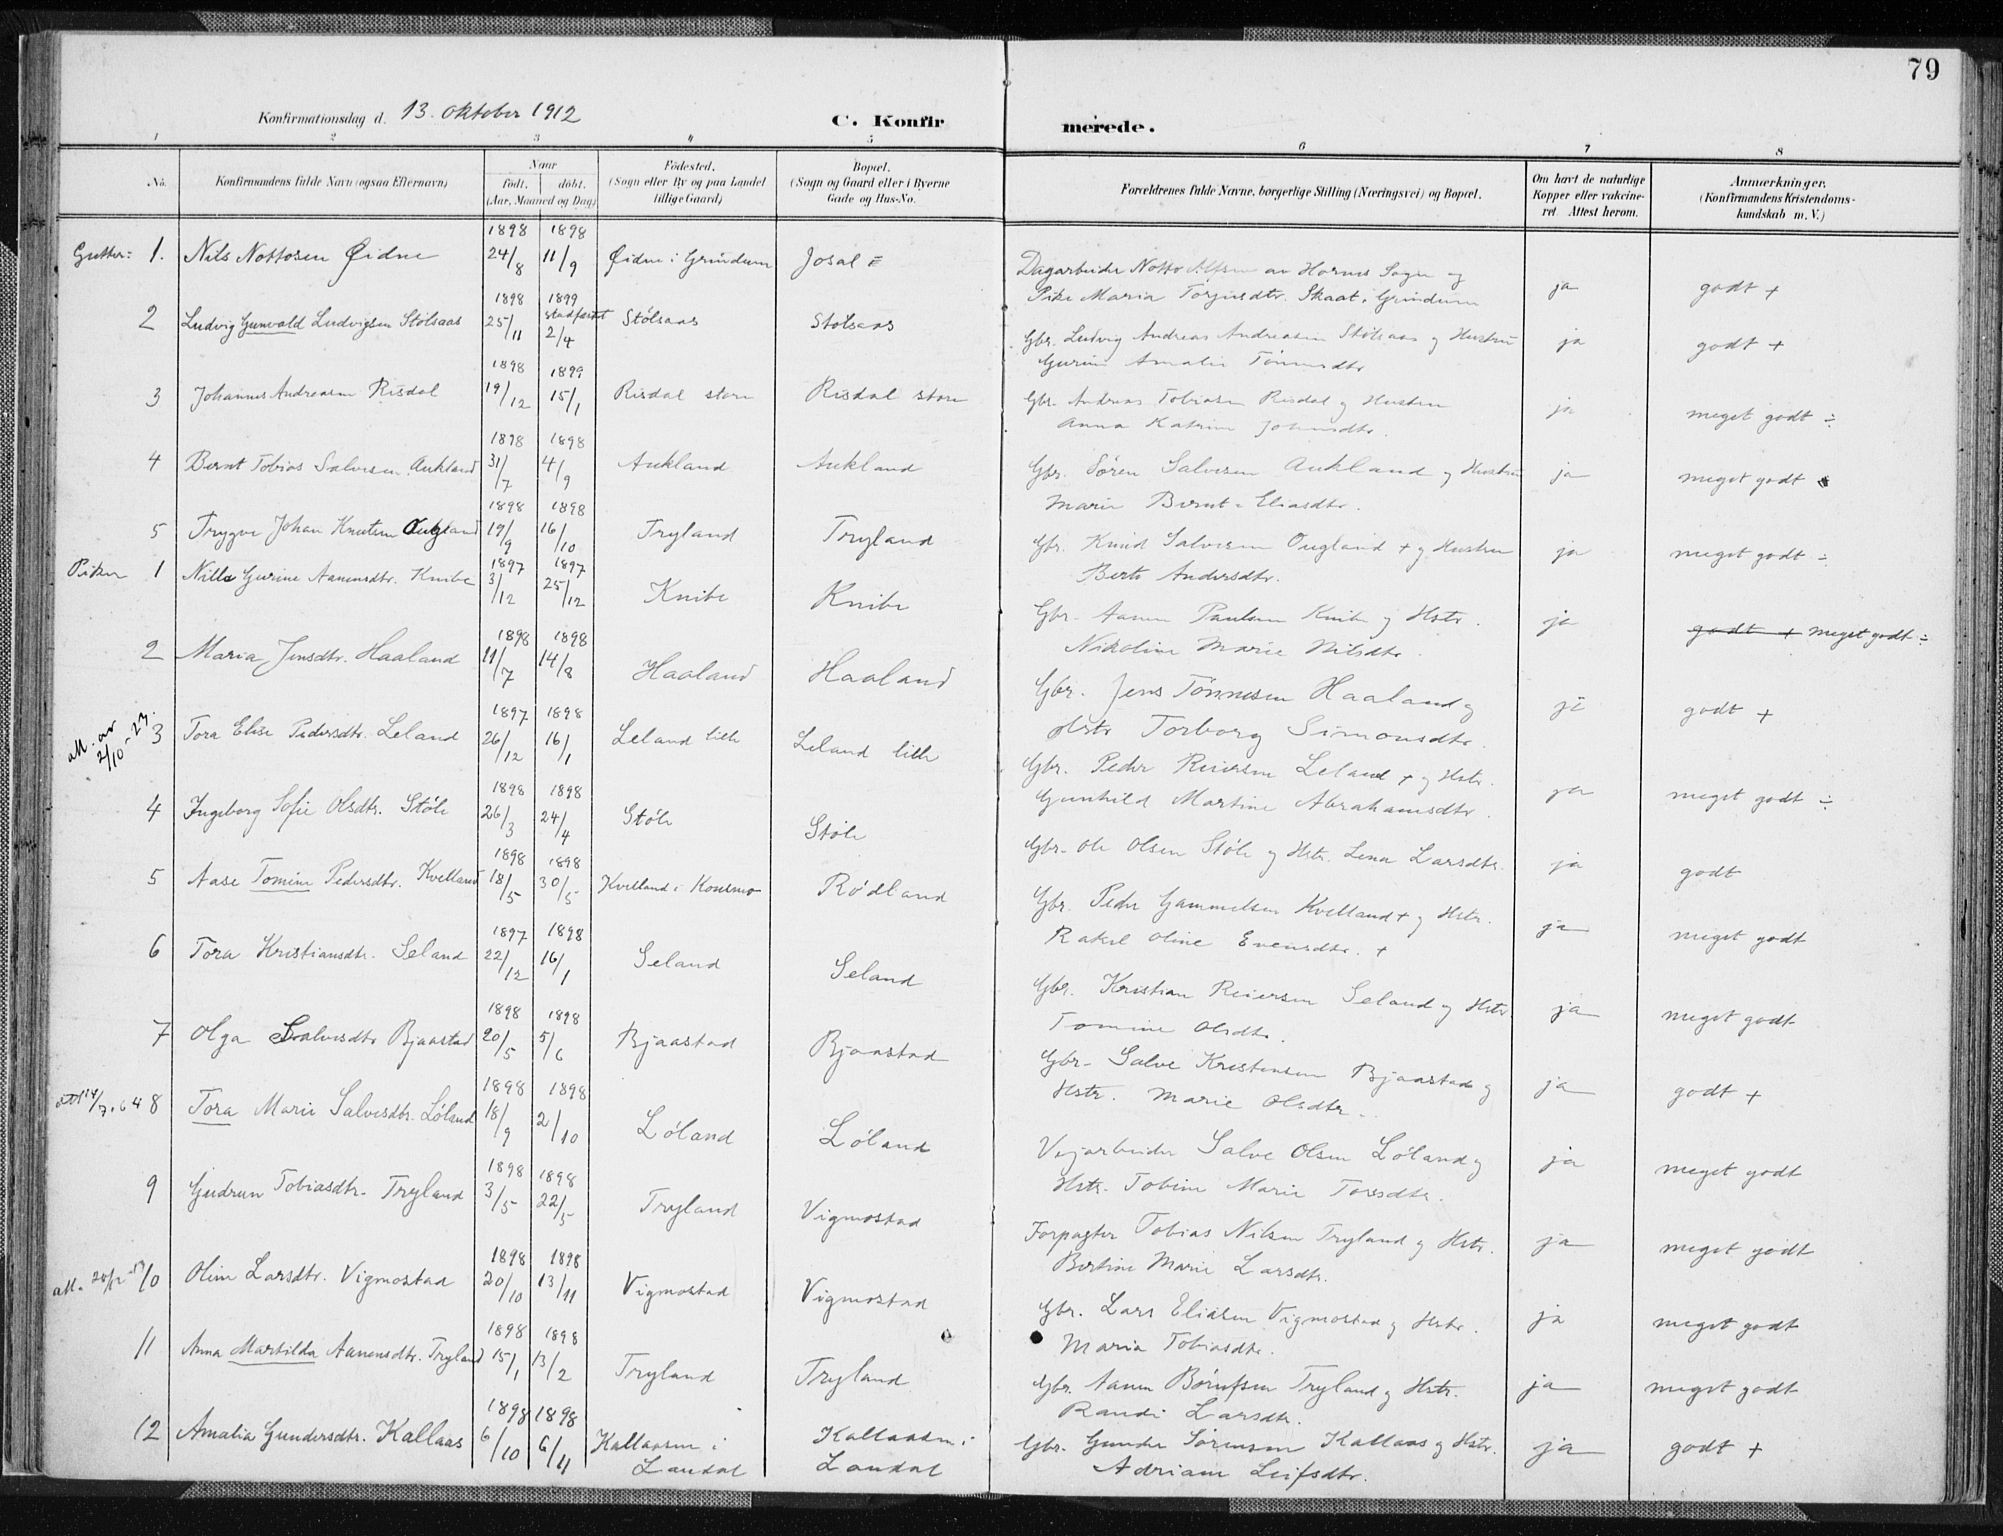 79
Konfirmationsdag d. 13. oktober 1912
C. Konfirmerede.
1 2 3 4 5 6 7 8
No. | Konfirmandens fulde Navn (ogsaa Efternavn) | Naar født. døbt. (Aar, Maaned og Dag) | Fødested. (Sogn eller By og paa Landet tillige Gaard) | Bopæl. (Sogn og Gaard eller i Byerne Gade og Hus-No. | Forældrenes fulde Navne, borgerlige Stilling (Næringsvei) og Bopæl. | Om havt de naturlige Kopper eller vakcineret Attest herom. | Anmærkninger. (Konfirmandens Kristendomskundskab m. V.)
Gutter: 1. Nils Nottosen Øidne | 1898 24/8 | 1898 11/9 | Øidne i Grindum | Josal | Dagarbeider Notto Alfsen av Hornes Sogn og
Pike Maria Torjusdtr. Skaat i Grindum | ja | godt +
2 Ludvig Gunvald Ludvigsen Stølsaas | 1898 25/11 | 1899 stadfæstet 2/4 | Stølsaas | Stølsaas | Gbr. Ludvig Andreas Andreasen Stølsaas og Hustru
Gurine Amalie Tønnesdtr | ja | godt +
3 Johannes Andreasen Risdal | 1898 19/12 | 1899 15/1 | Risdal store | Risdal store | Gbr. Andreas Tobiasen Risdal og Hustru
Anna Katrine Johnsdtr. | ja | meget godt ÷
4 Bernt Tobias Salvesen Aukland | 1898 31/7 | 1898 4/9 | Aukland | Aukland | Gbr. Søren Salvesen Aukland og Hustru
Marie Bernt-Eliasdtr. | ja | meget godt
5 Trygve Johan Knutsen Ougland | 1898 19/9 | 1898 16/10 | Tryland | Tryland | Gbr. Knud Salvesen Ougland + og Hustru
Berte Andersdtr. | ja | meget godt ÷
Piker 1 Nille Gurine Aanensdtr. Knibe | 1897 3/12 | 1897 25/12 | Knibe | Knibe | Gbr. Aanen Paulsen Knibe og Hstr.
Nikoline Marie Nilsdtr. | ja | godt + meget godt ÷
2 Maria Jensdtr. Haaland | 1898 11/7 | 1898 14/8 | Haaland | Haaland | Gbr. Jens Tønnesen Haaland og
Hstr Torborg Simonsdtr. | ja | godt +
att. av 2/10-23. 3 Tora Elise Pedersdtr. Leland | 1897 26/12 | 1898 16/1 | Leland lille | Leland lille | Gbr. Peder Reiersen Leland + og Hstr.
Gunhild Martine Abrahamsdtr. | ja | meget godt ÷
4 Ingeborg Sofie Olsdtr. Støle | 1898 26/3 | 1898 24/4 | Støle | Støle | Gbr. Ole Olsen Støle og Hstr. Lena Larsdtr. | ja | godt
5 Aase Tomine Pedersdtr. Kvelland | 1898 18/5 | 1898 30/5 | Kvelland i Konsmo | Rødland | Gbr. Peder Gammelsen Kvelland + og Hstr.
Rakel Oline Evensdtr. + | ja | meget godt
6 Tora Kristiansdtr. Seland | 1897 22/12 | 1898 16/1 | Seland | Seland | Gbr. Kristian Reiersen Seland og Hstr
Tomine Olsdtr. | ja | meget godt
7 Olga Salvesdtr Bjaastad | 1898 20/5 | 1898 5/6 | Bjaastad | Bjaastad | Gbr. Salve Kristensen Bjaastad og
Hstr. Marie Olsdtr. | ja | godt +
att 14/7.64 8 Tora Marie Salvesdtr. Løland | 1898 18/9 | 1898 2/10 | Løland | Løland | Vejarbeider Salve Olsen Løland og
Hstr. Tobine Marie Toresdtr. | ja | meget godt
9 Gudrun Tobiasdtr. Tryland | 1898 3/5 | 1898 22/5 | Tryland | Vigmostad | Forpagter Tobias Nilsen Tryland og Hstr.
Bertine Marie Larsdtr. | ja | meget godt
att. 10 Oline Larsdtr. Vigmostad | 1898 20/10 | 1898 13/11 | Vigmostad | Vigmostad | Gbr. Lars Eliasen Vigmostad og Hstr.
Maria Tobiasdtr. | ja | meget godt
11 Anna Martilda Aanensdtr. Tryland | 1898 15/1 | 1898 13/2 | Tryland | Tryland | Gbr. Aanen Børufsen Tryland og Hstr.
Randi Larsdtr. | ja | meget godt
12 Amalia Gundersdtr. Kallaas | 1898 6/10 | 1898 6/11 | Kallaasen i Laudal | Kallaasen i Laudal | Gbr. Gunder Sørensen Kallaas og Hstr.
Adriane Leifsdtr. | ja | godt +